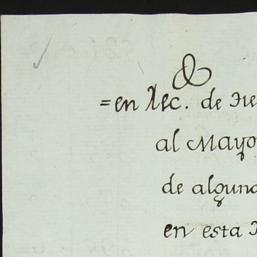 =en Dec. de
al Mayo
de alguna
en esta